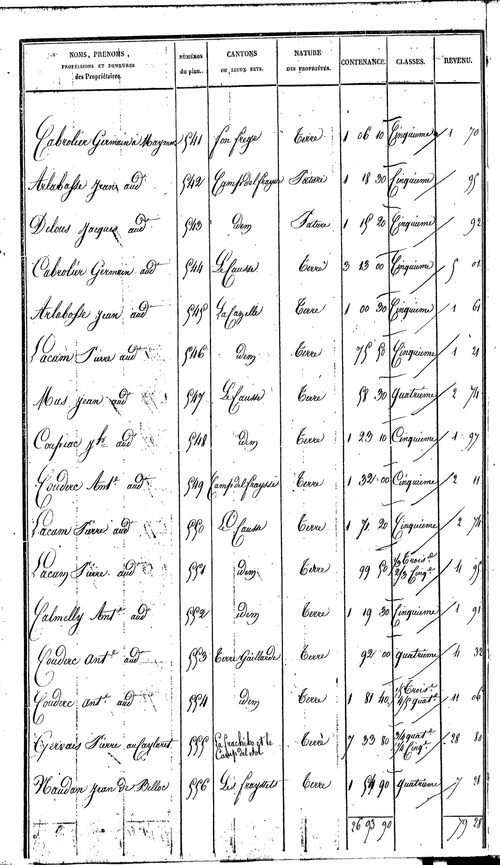 NOMS, PRENOMS, PROFESSIONS ET DEMEURES des Propriétaires. NUMÉROS du plan. CANTONS OU LIEUX DITS. NATURE DES PROPRIÉTÉS. CONTENANCE. CLASSES. REVENU.
Cabrolier Germain à 541 fon frege Terre 1 06 10 Cinquieme 1 70
Arlabosse Jean aud 542 Camp del fraysse Pature 1 18 30 Cinquieme 95
Delous Jacques aud 543 idem Pature 1 15 20 Cinquieme 92
Cabrolier Germain aud 544 Le Causse Terre 3 13 00 Cinquieme 5 01
Arlabosse Jean aud 545 La Cazelle Terre 1 00 30 Cinquieme 1 61
Lacam Pierre aud 546 idem Terre 75 50 Cinquieme 1 21
Mas Jean aud 547 Le Causse Terre 58 30 quatrieme 2 74
Coupiac jh aud 548 idem Terre 1 23 10 Cinquieme 1 97
Couderc Ant.e aud 549 Camp del fraysse Terre 1 32 00 Cinquieme 2 11
Lacam Pierre aud 550 Le Causse Terre 1 71 20 Cinquieme 2 74
Lacam Pierre aud 551 idem Terre 99 50 1/3 Trois.e 2/3 Cinq.e 4 95
Calmelly Ant.e aud 552 idem Terre 1 19 30 Cinquieme 1 91
Couderc ant.e aud 553 Terre Gaillarde Terre 92 00 quatrieme 4 32
Couderc ant.e aud 554 idem Terre 1 81 40 Trois.e 4/5 quat.e 11 06
Gervais Pierre au Cayloret 555 Le frachet et le Camp del sol Terre 7 33 80 3/4 quat.e 1/4 Cinq.e 28 80
Naudan Jean de Belloc 556 Les frayssets Terre 1 54 90 quatrieme 7 28
26 93 90 79 28